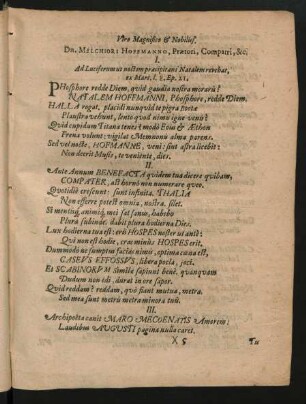 Viro Magnifico & Nobiliss.
DR. MELCHIORI HOFFMANNO, Prætori, Compatri, &c.
I.
Ad Luciferum ut noctem præcipitans Natalem revehat,
ex Mart. l. 8. Ep. 21.
PHosphore redde Diem, quid gaudia nostra moraris?
NATALEM HOFFMANNI, Phosphore, redde Diem.
HALLA rogat, placidi nunquid te pigra
Plaustra vehunt, lento quod nimis igne venis?
Quid cupidum Titana tenes? modo Eoiu & Æthon
Frena volunt: vigilat Memnonis alma parens.
Sed vel nocte, HOFMANNE, veni: sint astra licebit:
Non deerit Musis, te veniente, dies.
II.
Ante Annum BENEFACTA quidem tua dicere quibam,
COMPATER, ast horno non numerare queo.
Quotidiè crescunt: sunt infinita. THALIA
Non efferre potest omnia, nostra. silet.
Si mentiúq, animiq, mei sat fanus, habebo
Plura subinde: dabit plura hodierna Dies.
Lux hodierna tua est: erit HOSPES noster ut ante:
Qui non est hodie, cras minùs HOSPES erit.
Dummodò ne sumptus facias nimis, optima cæna est,
CASEUS EFFOSSUS, libera pocla, joci.
Et SCABINORUM simila sapiunt benè. quanquam
Dudum non edi, durat in ore sapor.
Quid reddam? reddam, quò fiant mutua, metra.
Sed mea sunt meritis metra minora tuis.
III.
Archipoëta canit MARO MECOENATIS Amorem:
Laudibus AUGUSTI pagina nulla caret.
X 5
Tu